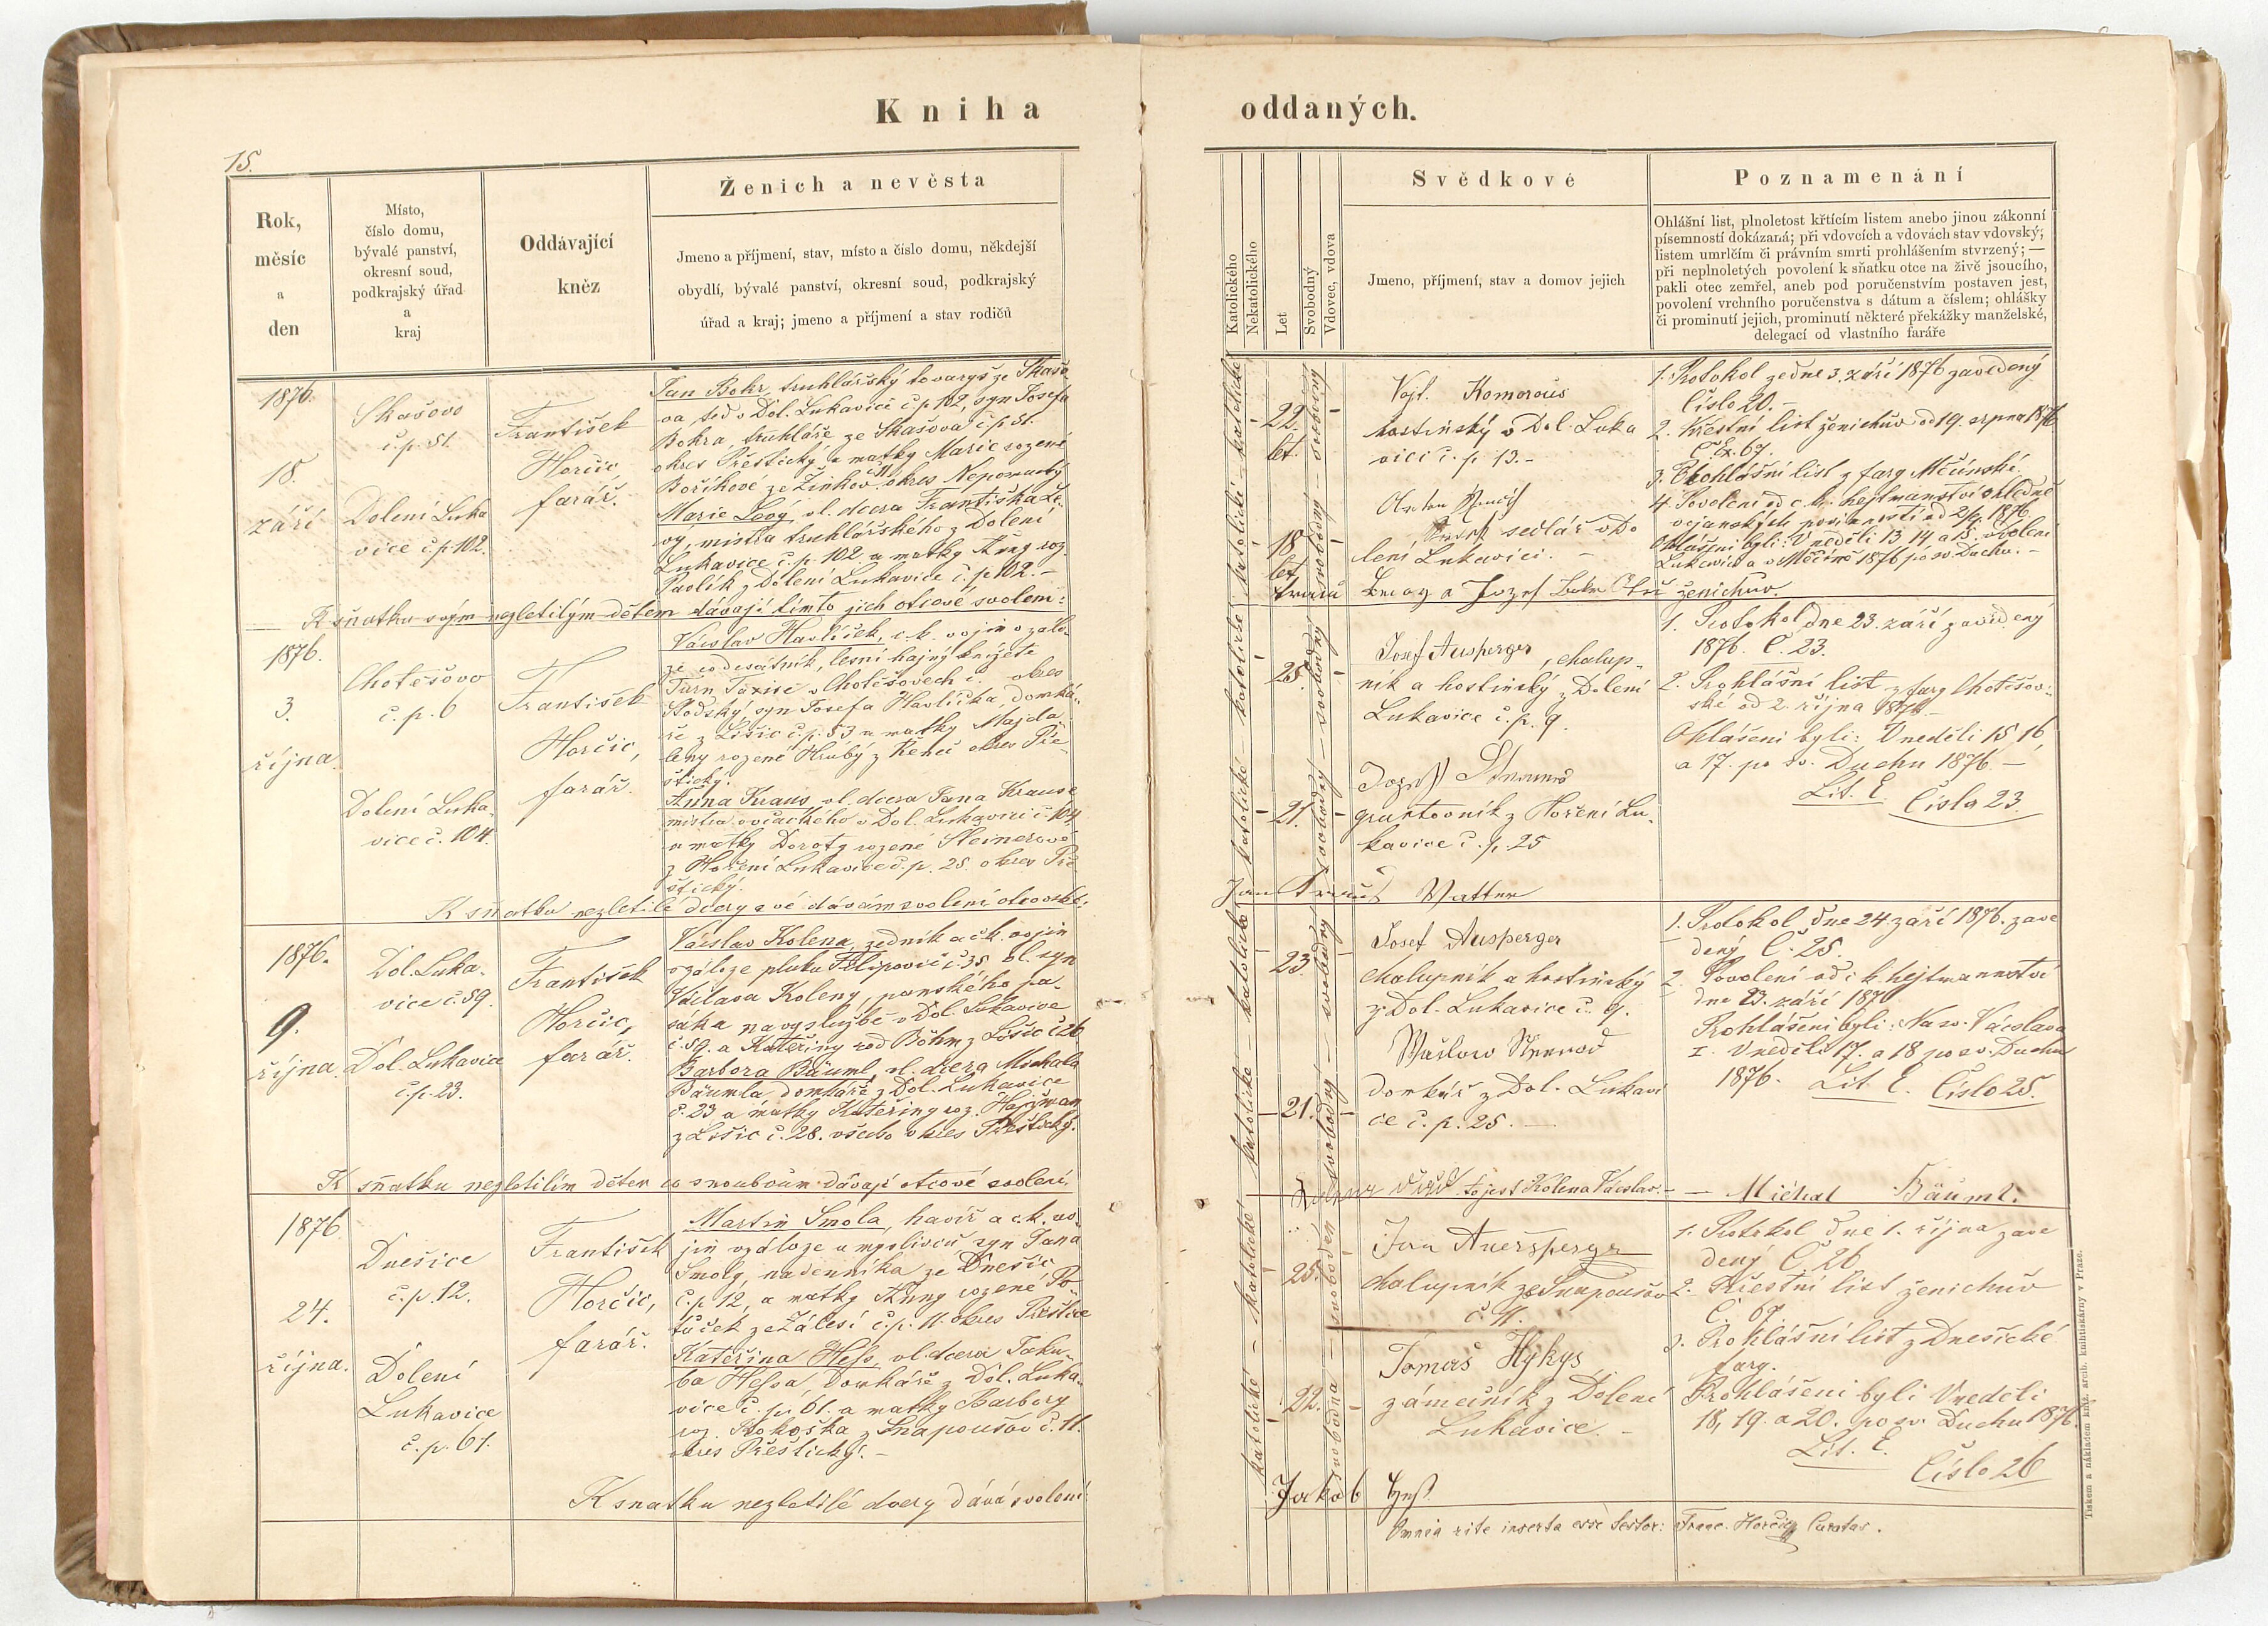 Kniha oddaných.
15.
Rok,
měsíc
a
den
Místo,
číslo domu,
bývalé panství,
okresní soud,
podkrajský úřad
a
kraj
Oddávající
kněz
Ženich a nevěsta
Jmeno a příjmení, stav, místo a číslo domu, někdejší
obydlí, bývalé panství, okresní soud, podkrajský
úřad a kraj; jmeno a příjmení a stav rodičů
Katolického
Nekatolického
Let
Svobodný
Vdovec, vdova
Svědkové
Jmeno, příjmení, stav a domov jejich
Poznamenání
Ohlášní list, plnoletost křtícím listem anebo jinou zákonní
písemností dokázaná; při vdovcích a vdovách stav vdovský;
listem umrlčím či právním smrti prohlášením stvrzený; —
při neplnoletých povolení k sňatku otce na živě jsoucího,
pakli otec zemřel, aneb pod poručenstvím postaven jest,
povolení vrchního poručenstva s dátum a číslem; ohlášky
či prominutí jejich, prominutí některé překážky manželské,
delegací od vlastního faráře
1876.
18.
září
Skašovo
č.p. 51.
Dolení Luka
vice č.p 102.
František
Horčic
farář.
Jan Bohr, truhlářský tovaryš ze Skašo
va teď v Dol. Lukavici č p 102, syn Josefa
Bohra, truhláře ze Skašova č.p 51.
okres Přeštický, a matky Marie rozené
Boříkové ze Žinkov okres Nepomucký
Marie Levý, vl. dcera Františka Le
vý, mistra truhlářského z Dolení
Lukavice č.p. 102 a matky Anny roz.
Pavlík z Dolení Lukavice č. p 102. –
K sňatku svým nezletilým dětem dávají tímto jich otcové svolení:
22.
let.
18
let
katolické
svobodný
Vojt. Komorous
hostinský v Dol. Luka
vici č. p 13. –
sedlář v Do
lení Lukavici. –
ženichův.
1. Protokol ze dne 3. září 1876 zavedený
Číslo 20. –
2. Křestní list ženichův od 19. srpna 1876
Č. Ex. 67.
3. Prohlášní list z fary Měčínské.
4. Povolení od c. k. hejtmanství ohledně
vojanských povinností od 2/9. 1876
Ohlášeni byli: V neděli 13 14 a 15. v Dolení
Lukavici a v Měčíně 1876 po sv. Duchu. –
1876.
3.
října.
Chotěšovo
č. p. 6
Dolení Luka
vice č. 104.
František
Horčic,
farář.
Václav Havlíček, c. k. vojín v zálo
ze co desátník, lesní hajný knížete
Turn Taxise v Chotěšovech č. okres
Stodský, syn Josefa Havlíčka, domká
ře z Lišic č.p. 53 a matky Majda
leny rozené Hrubý z Řenče okres Pře
štický.
Anna Kraus, vl. dcera Jana Krause
mistra ovčáckého v Dol. Lukavici č. 104
a matky Doroty rozené Steinerové
z Hoření Lukavice č. p. 25. okres Pře
štický.
K sňatku nezletilé dcery své dávám svolení otcovské:
25.
21.
Josef Ausperger, chalup-
ník a hostinský z Dolení
Lukavice č. p. 9.
Jozef
gruntovník z Hoření Lu-
kavice č. p. 25
Jan Watter
1. Protokol dne 23. září zavedený
1876. Č. 23.
2. Prohlášní list z fary Chotěšov-
ské od 2. října 1876. –
Ohlášeni byli: V neděli 15 16,
a 17. po sv. Duchu 1876 –
Lit. E. Číslo 23
1876.
9.
října.
Dol. Luka-
vice č. 59.
Dol. Lukavice
č.p. 23.
František
Horčic,
farář.
Václav Kolena, zedník a c. k. vojín
v záloze pluku Filipovič č. 35 vl. syn
Václava Koleny, panského pa-
sáka na vyslužbě v Dol. Lukavice
č. 59. a Kateřiny rod Böhm z Lišic č 26
Barbora Bäuml, vl. dcera Michala
Bäumla domkáře z Dol. Lukavice
č. 23 a matky Kateřiny roz. Hajšman
z Lišic č. 28. všecko okres Přeštický.
K sňatku nezletilím dětem co snouboum dávají otcové svolení.
23.
21.
Josef Ausperger
chalupník a hostinský
z Dol. Lukavice č. 9.
domkář z Dol. Lukavi
ce č. p. 25. –
to jest Kolena Václav. – – Michal Bäuml.
1. Protokol dne 24. září 1876. zave
dený Č. 25.
2. Povolení od c k. hejtmannství
dne 23. září 1876
Prohlášeni byli: Na sv. Václava
I. V neděli 17. a 18 po sv. Duchu
1876. Lit. E. Číslo 25.
1876
24.
října.
Dnešice
č. p. 12.
Dolení
Lukavice
č. p. 61.
František
Horčic,
farář.
Martin Smola, havíř a c. k. vo-
jín v záloze u myslivců syn Jana
Smoly, nádenníka ze Dnešic
č. p 12, a matky Anny rozené Po-
tůček ze Zálesí č. p. 11. okres Přeštice
Kateřina Heſs, vl. dcera Jaku-
ba Heſsa, domkáře z Dol. Luka-
vice č. p. 61. a matky Barbory
roz. Kokoška z Snapoušov č. 11.
okres Přeštický. –
K snatku nezletilé dcery dává svolení:
25.
22.
svoboden
svobodna
Jan Auersperger
chalupník ze Snapoušov
č. 4.
Tomaš Hykys
zámečník z Dolení
Lukavice. –
Jakob Heß
1. Protokol dne 1. října zave
dený Č. 26
2. Křestní list ženichův
Č. 67.
3. Prohlášní list z Dnešické
fary.
Prohlášeni byli V neděli
18, 19. a 20. po sv. Duchu 1876.
Lit. E.
Číslo 26
Omnia rite inserta esse testor: Franc. Horčic Curatus.
Tiskem a nákladem kníž. arcib. knihtiskárny v Praze.